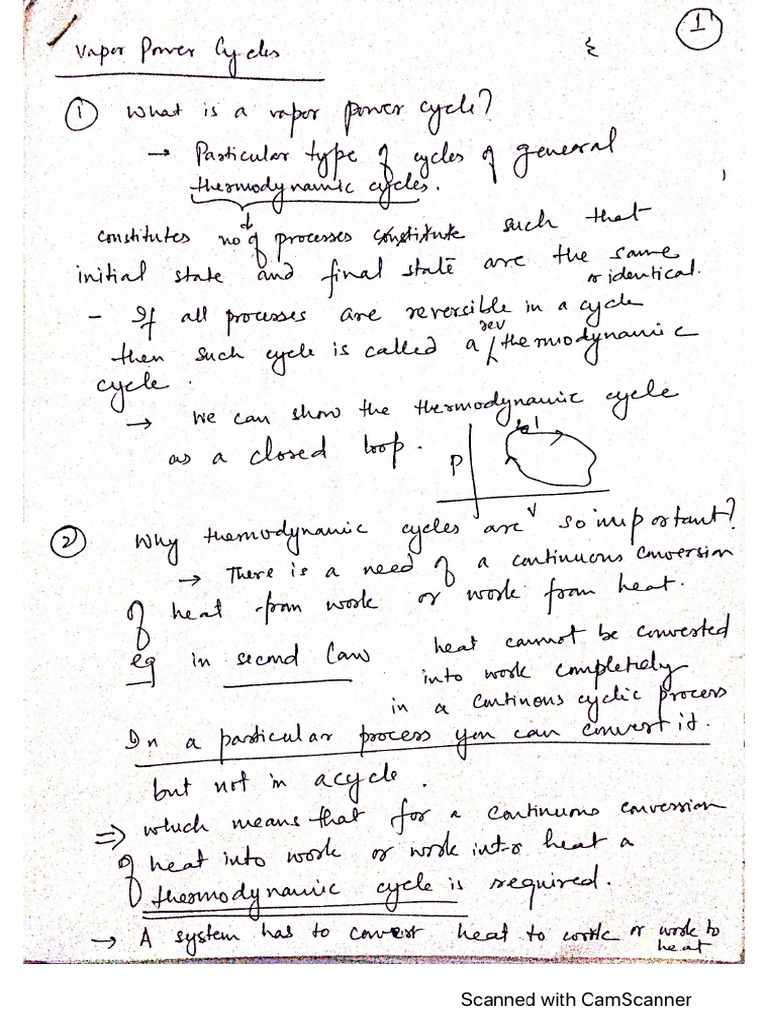 1
Vapor Power Cycles
① What is a vapor power cycle?
→ Particular type of cycles of general
thermodynamic cycles.
constitutes no of processes constitute such that
initial state and final state are the same
or identical.
- If all processes are reversible in a cycle
then such cycle is called a rev thermodynamic
cycle.
→ We can show the thermodynamic cycle
as a closed loop.
1
P
V
② Why thermodynamic cycles are so important?
→ There is a need of a continuous conversion
of heat from work or work from heat.
eg in second law heat cannot be converted
into work completely
in a continous cyclic process
In a particular process you can convert it.
but not in a cycle.
⇒ which means that for a continuous conversion
of heat into work or work into heat a
thermodynamic cycle is required.
→ A system has to convert heat to work or work to
heat
Scanned with CamScanner